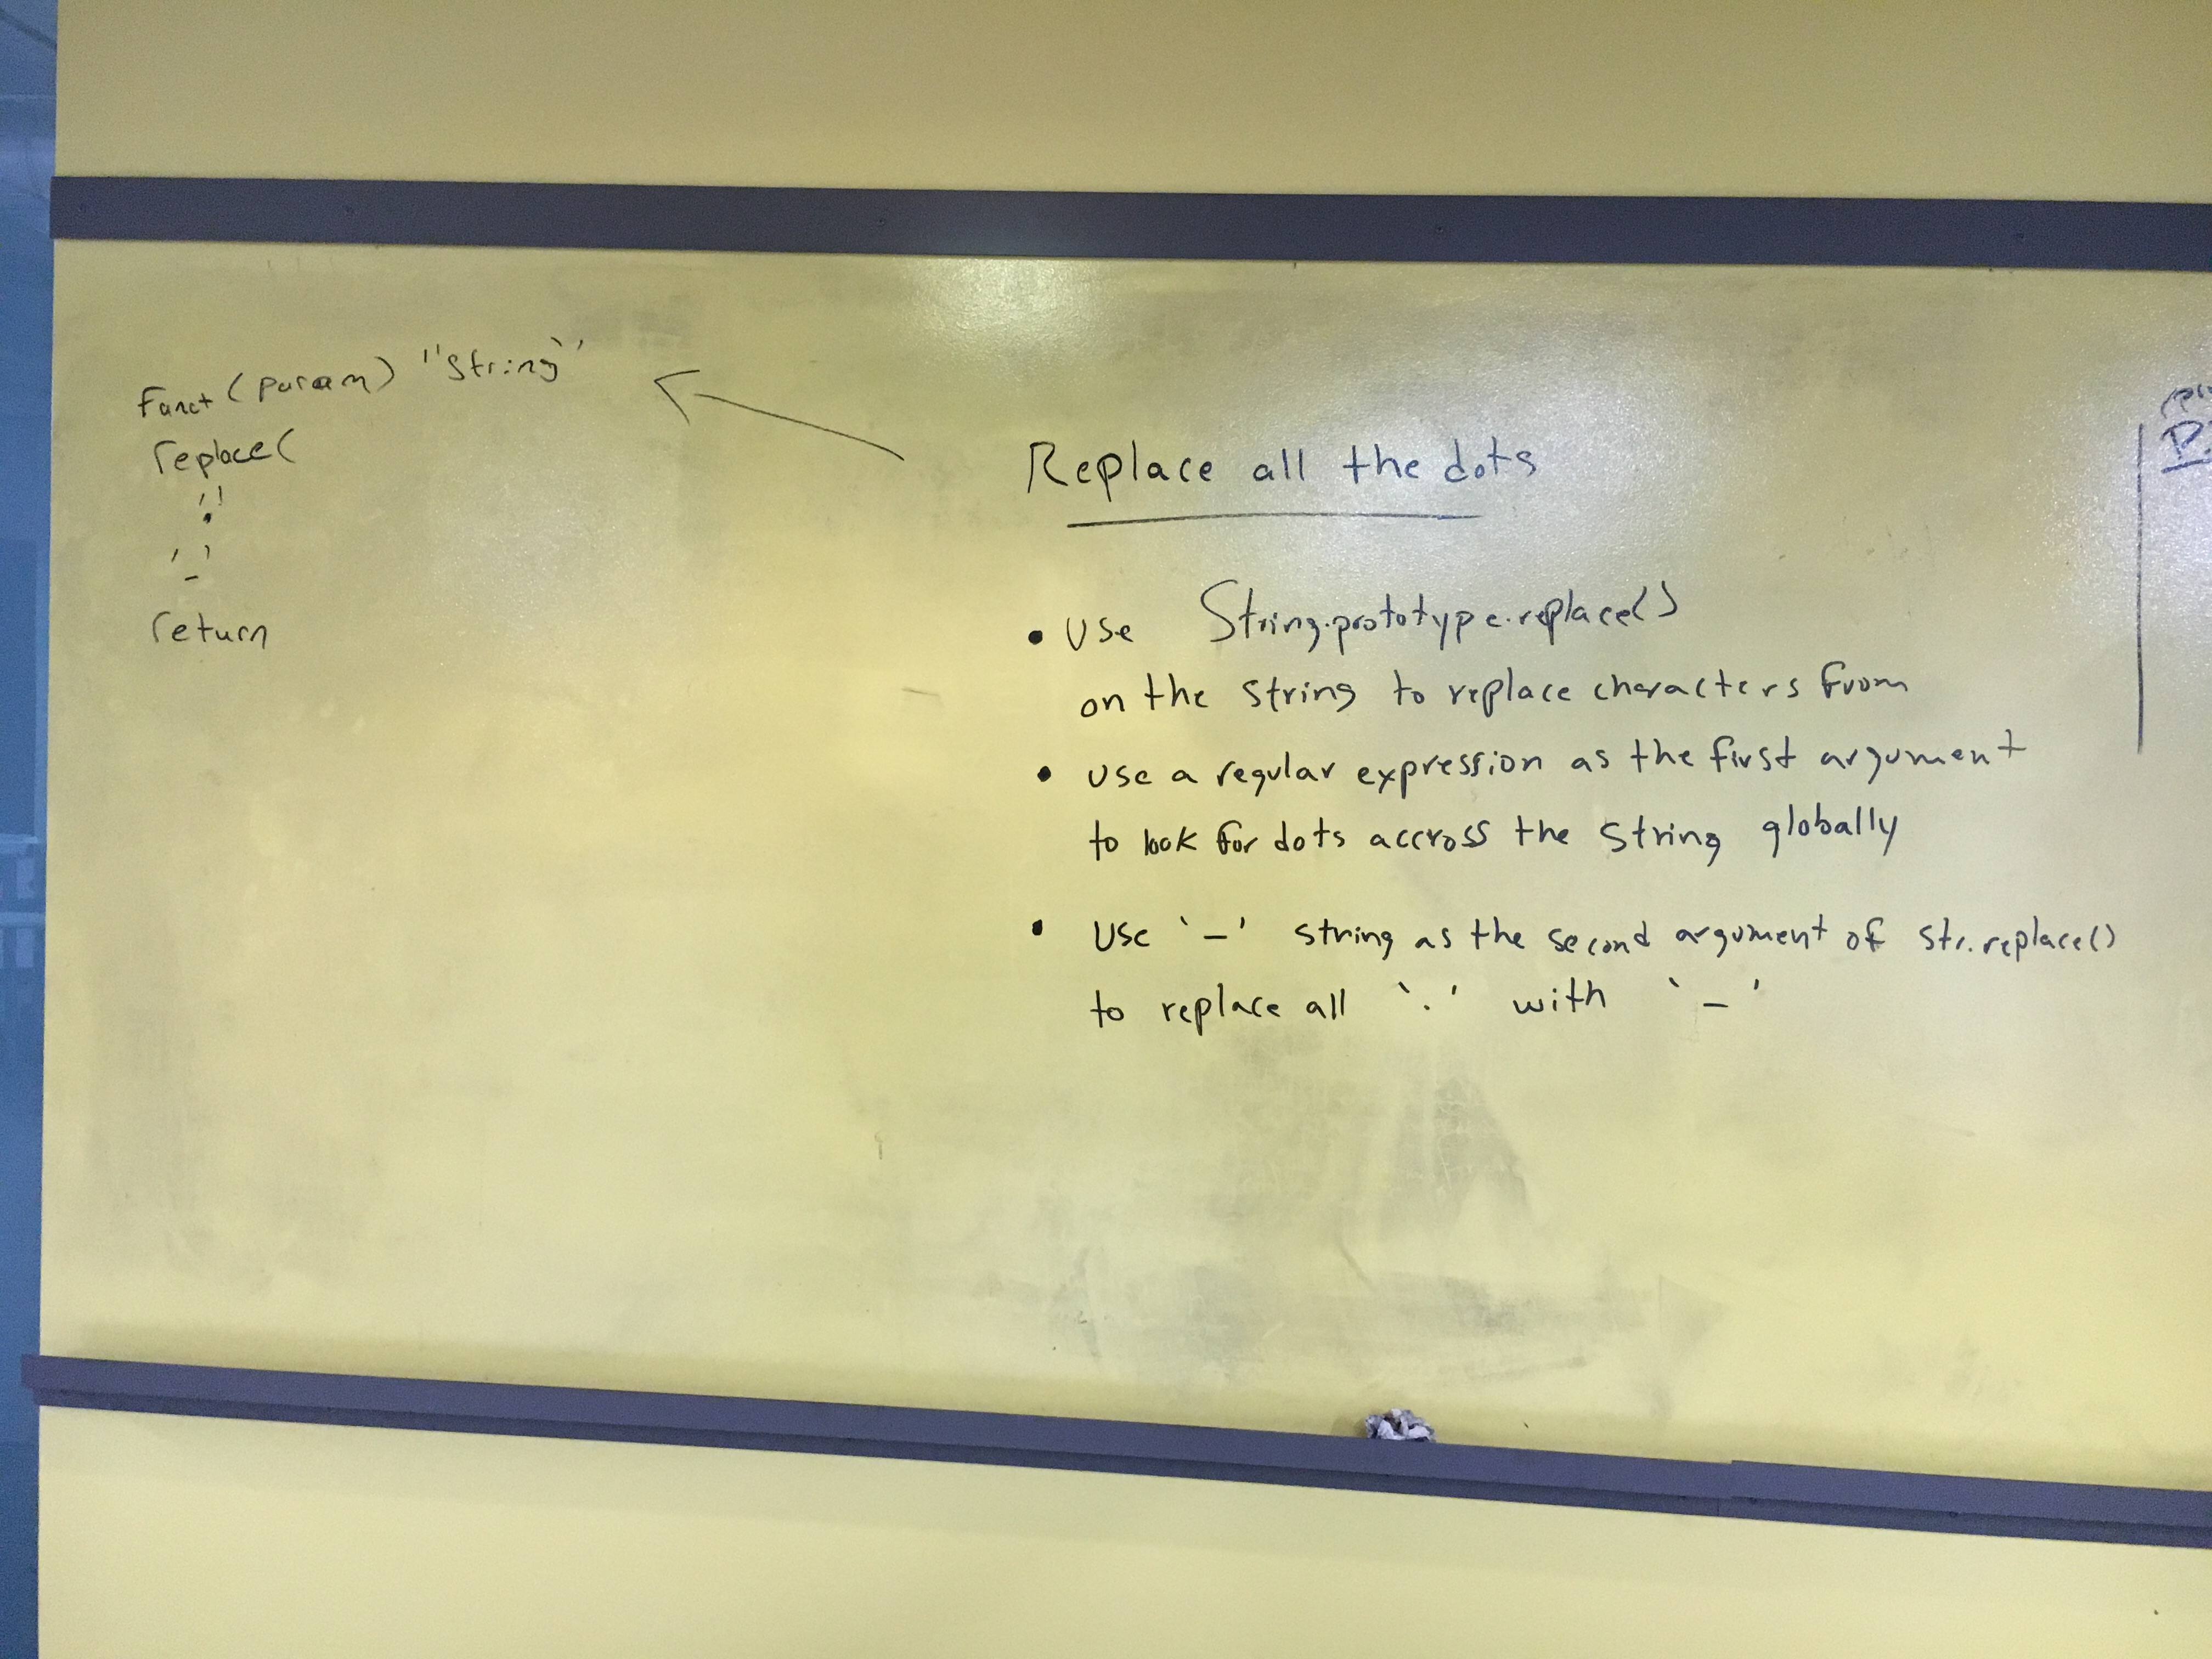 Funct (param) "String"
replace(
'.'
'-'
return
Replace all the dots
• Use String.prototype.replace()
on the string to replace characters from
• use a regular expression as the first argument
to look for dots accross the string globally
• Use '-' string as the second argument of str.replace()
to replace all '.' with '-'